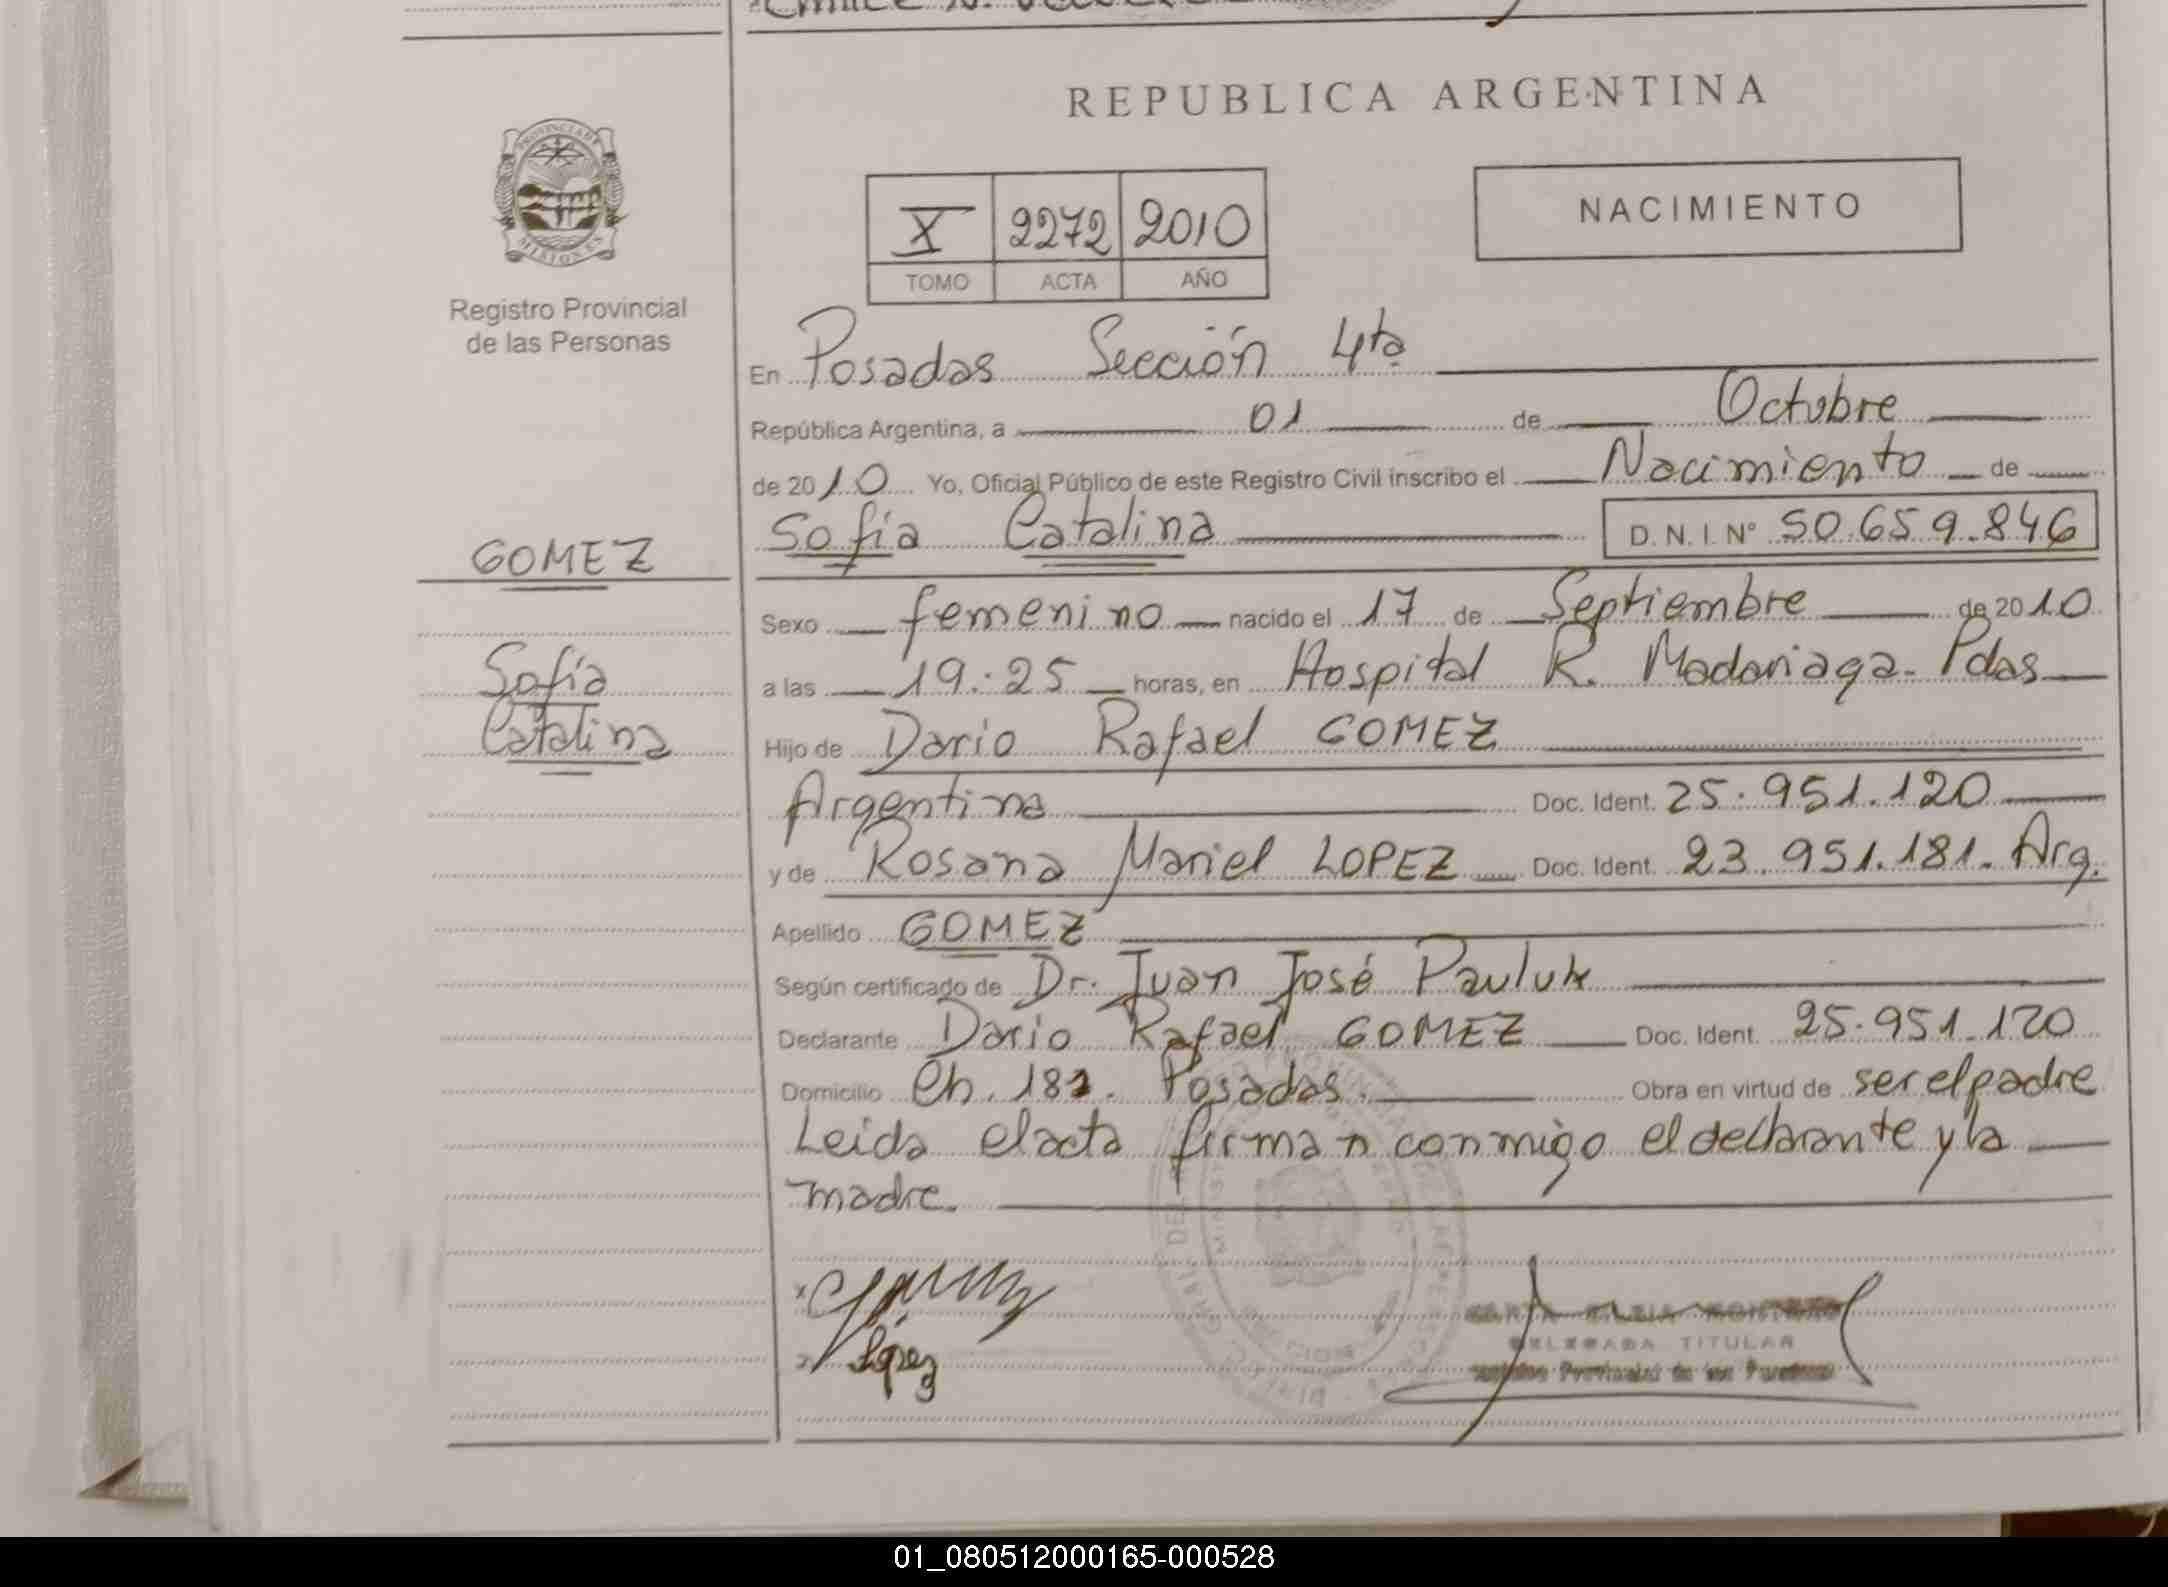 REPUBLICA ARGENTINA
PROVINCIA DE
MISIONES
Registro Provincial
de las Personas
NACIMIENTO
X 2272 2010
TOMO ACTA AÑO
En Posadas Sección 4ta
República Argentina, a 01 de Octubre
de 2010 Yo, Oficial Público de este Registro Civil inscribo el Nacimiento de
Sofía Catalina D.N.I. Nº 50.659.846
GOMEZ
Sofía
Catalina
Sexo femenino nacido el 17 de Septiembre de 2010
a las 19:25 horas, en Hospital R. Madariaga - Pdas
Hijo de Dario Rafael GOMEZ
Argentina Doc. Ident. 25.951.120
y de Rosana Mariel LOPEZ Doc. Ident. 23.951.181. Arg.
Apellido GOMEZ
Según certificado de Dr. Juan José
Declarante Dario Rafael GOMEZ Doc. Ident. 25.951.120
Domicilio Ch. Posadas. Obra en virtud de ser el padre
Leida el acta firman conmigo el declarante y la
madre.
López
DELEGADA TITULAR
Provincial de las Personas
01_080512000165-000528